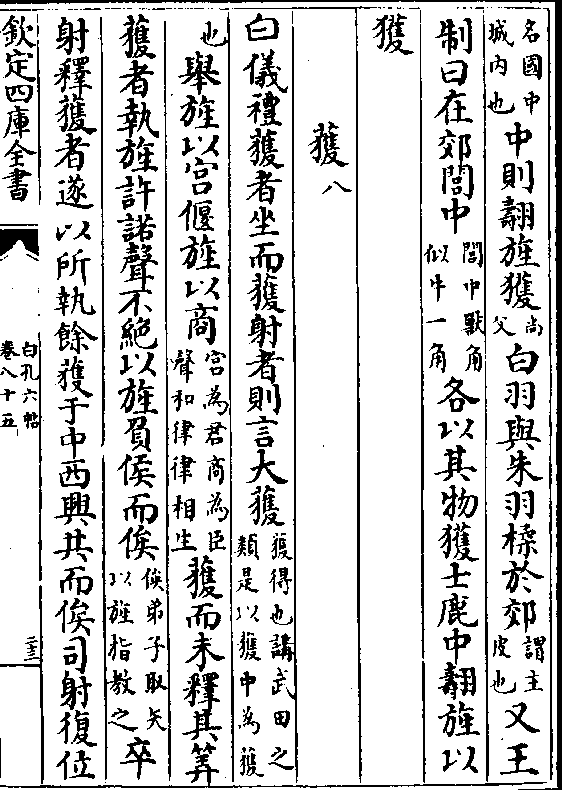 名國中
城内也
中則翿旌獲
尚
父
白羽與朱羽糅於郊
謂主
皮也
又王
制曰在郊閭中
閭中獸角
似牛一角
各以其物獲士鹿中翿旌以
獲
獲八
白儀禮獲者坐而獲射者則言大獲
獲得也講武田之
類是以獲中為獲
也
舉旌以宫偃旌以商
宫為君商為臣
聲和律律相生
獲而未釋其筭
獲者執旌許諾聲不絶以旌負侯而俟
俟弟子取矢
以旌指教之
卒
射釋獲者遂以所執餘獲于中西興共而俟司射復位
欽定四庫全書
白孔六帖
卷八十五
二三